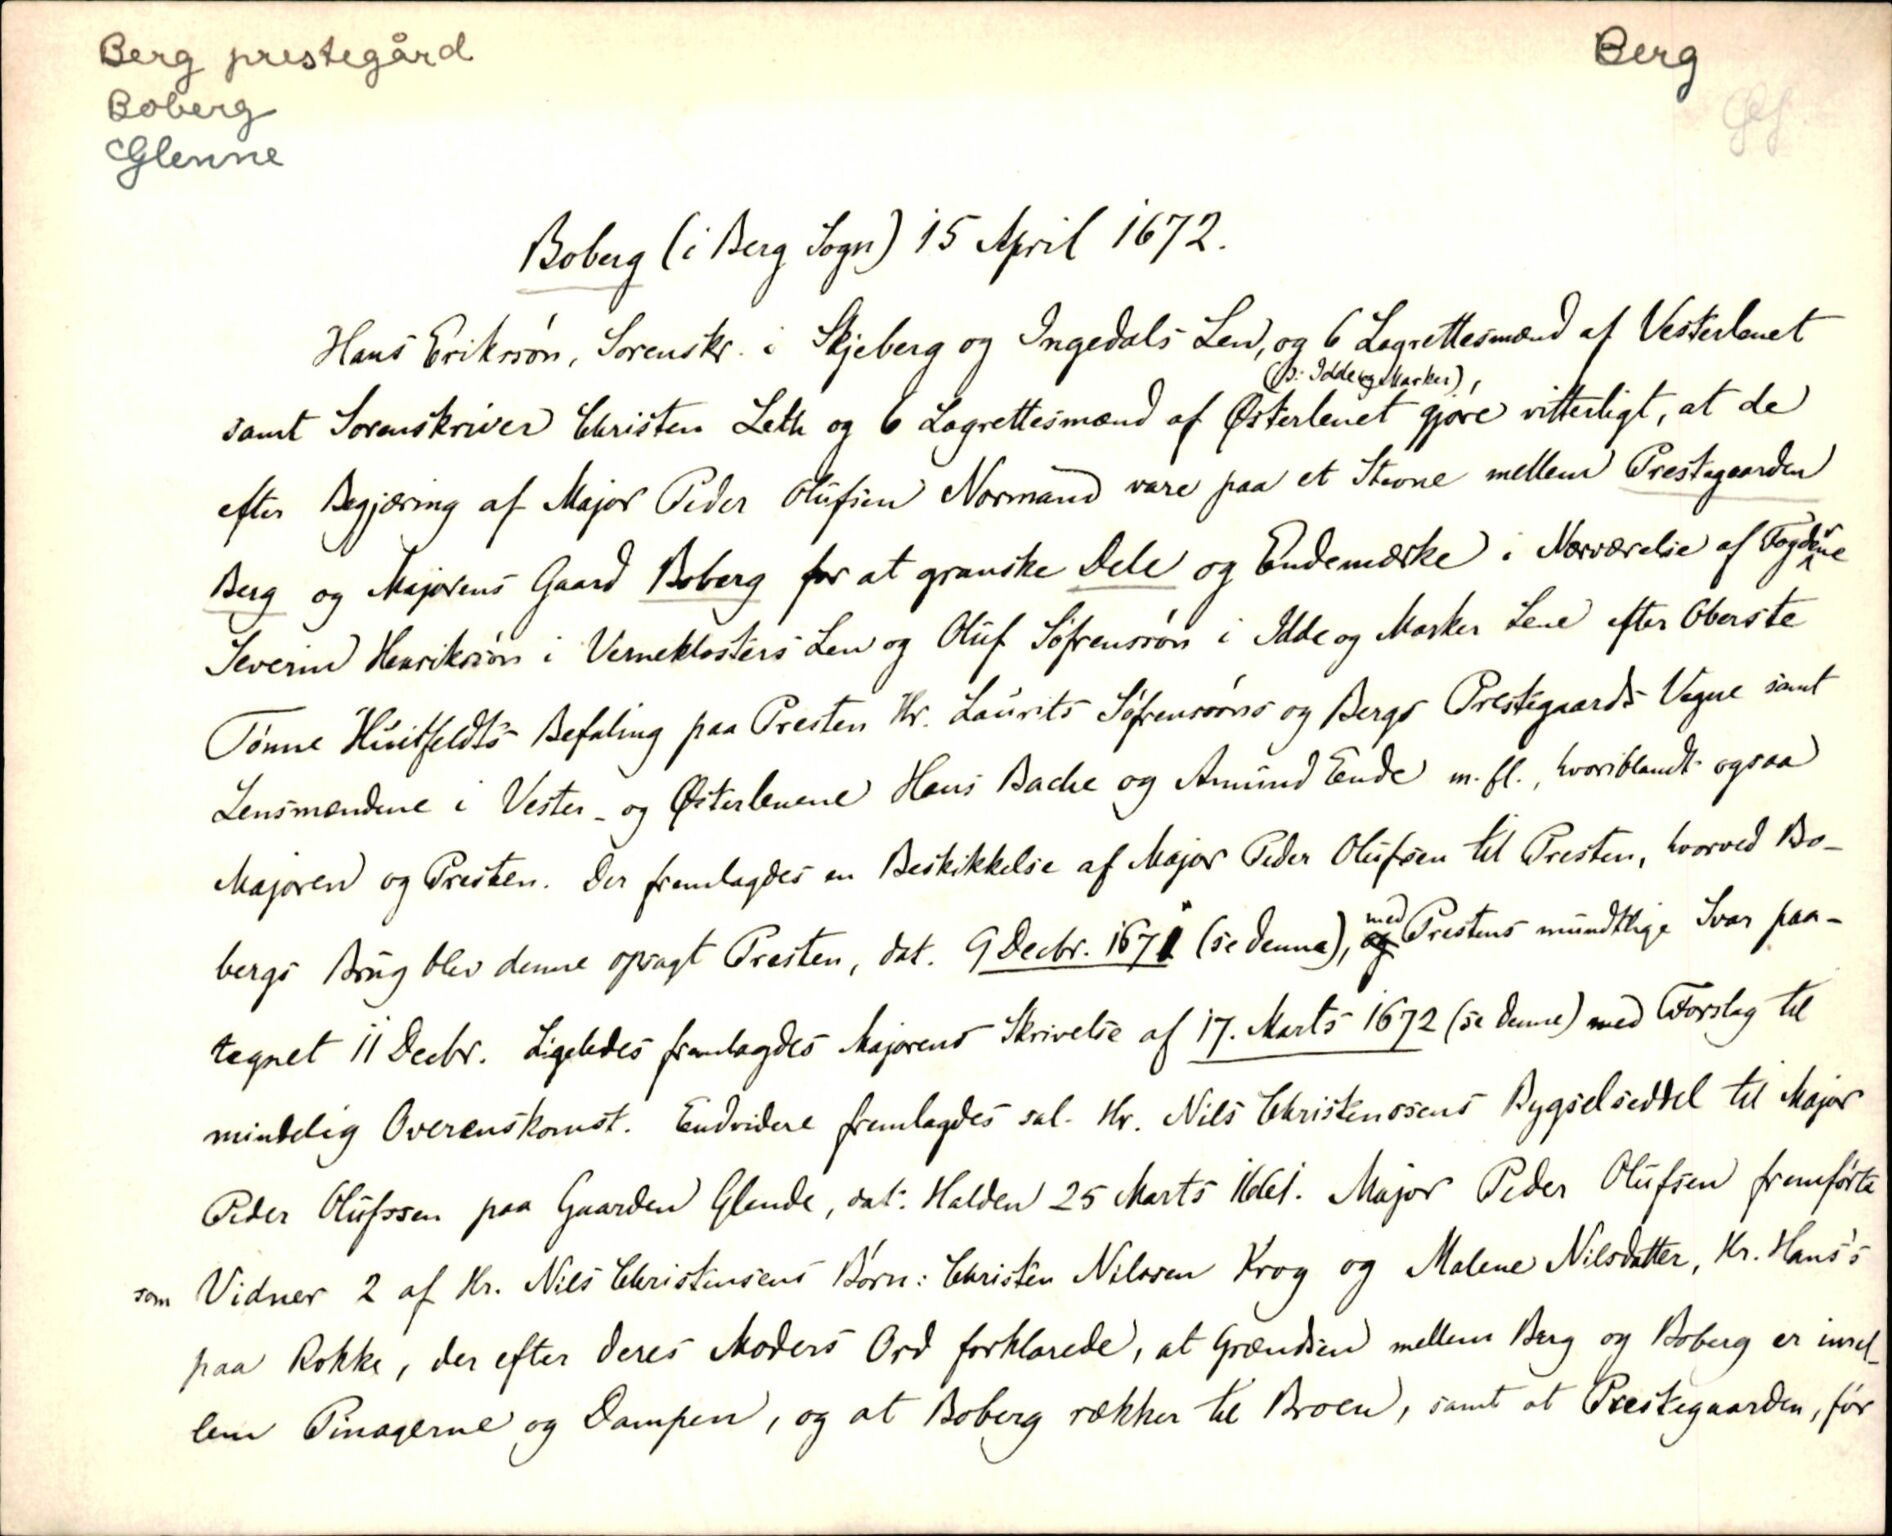 Berg prestegård
Boberg
Glenne
Berg
Boberg (i Berg Sogn) 15 April 1672.
Hans Erikssön, Sorenskr. i Skjeberg og Ingedals Len, og 6 Lagrettesmænd af Vesterlenet
samt Sorenskriver Christen Leth og 6 Lagrettesmænd af Østerlenet (ɔ: Idde og Marker), gjöre vitterligt, at de
efter Begjæring af Major Peder Olufsen Normand vare paa et Stevne mellem Prestegaarden
Berg og Majorens Gaard Boberg for at granske Dele og Endemærke i Nærværelse af Fogderne
Severin Henrikssön i Verneklosters Len og Oluf Söfrenssön i Idde og Marker Lene efter Oberste
Tönne Huitfeldts Befaling paa Presten Hr. Laurits Söfrenssöns og Bergs Prestegaards Vegne samt
Lensmændene i Vester- og Østerlenene Hans Bache og Amund Ende m. fl., hvoriblandt ogsaa
Majoren og Presten. Der fremlagdes en Beskikkelse af Major Peder Olufsen til Presten, hvorved Bo-
bergs Brug blev denne opsagt Presten, dat. 9 Decbr. 1671 (se denne), med Prestens mundtlige Svar paa-
tegnet 11 Decbr. Ligeledes fremlagdes Majorens Skrivelse af 17. Marts 1672 (se denne) med Forslag til
mindelig Overenskomst. Endvidere fremlagdes sal. Hr. Nils Christenssens Bygselseddel til Major
Peder Olufssen paa Gaarden Glende, dat. Halden 25 Marts 1661. Major Peder Olufsen fremförte
som Vidner 2 af Hr. Nils Christensens Börn: Christen Nilssen Krog og Malene Nilsdatter, Hr. Hans's
paa Rokke, der efter deres Moders Ord forklarede, at Grændsen mellem Berg og Boberg er imel-
lem Pinagerne og Dampen, og at Boberg rækker til Broen, samt at Prestegaarden, för